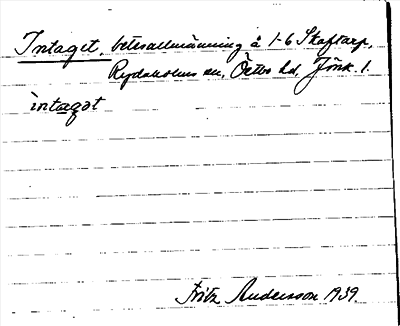 Intaget, betesallmänning å 1-6 Skaftarp,
Rydaholms sn, Östbo hd, Jönk. l.
ìntægət
Fritz Andersson 1939.